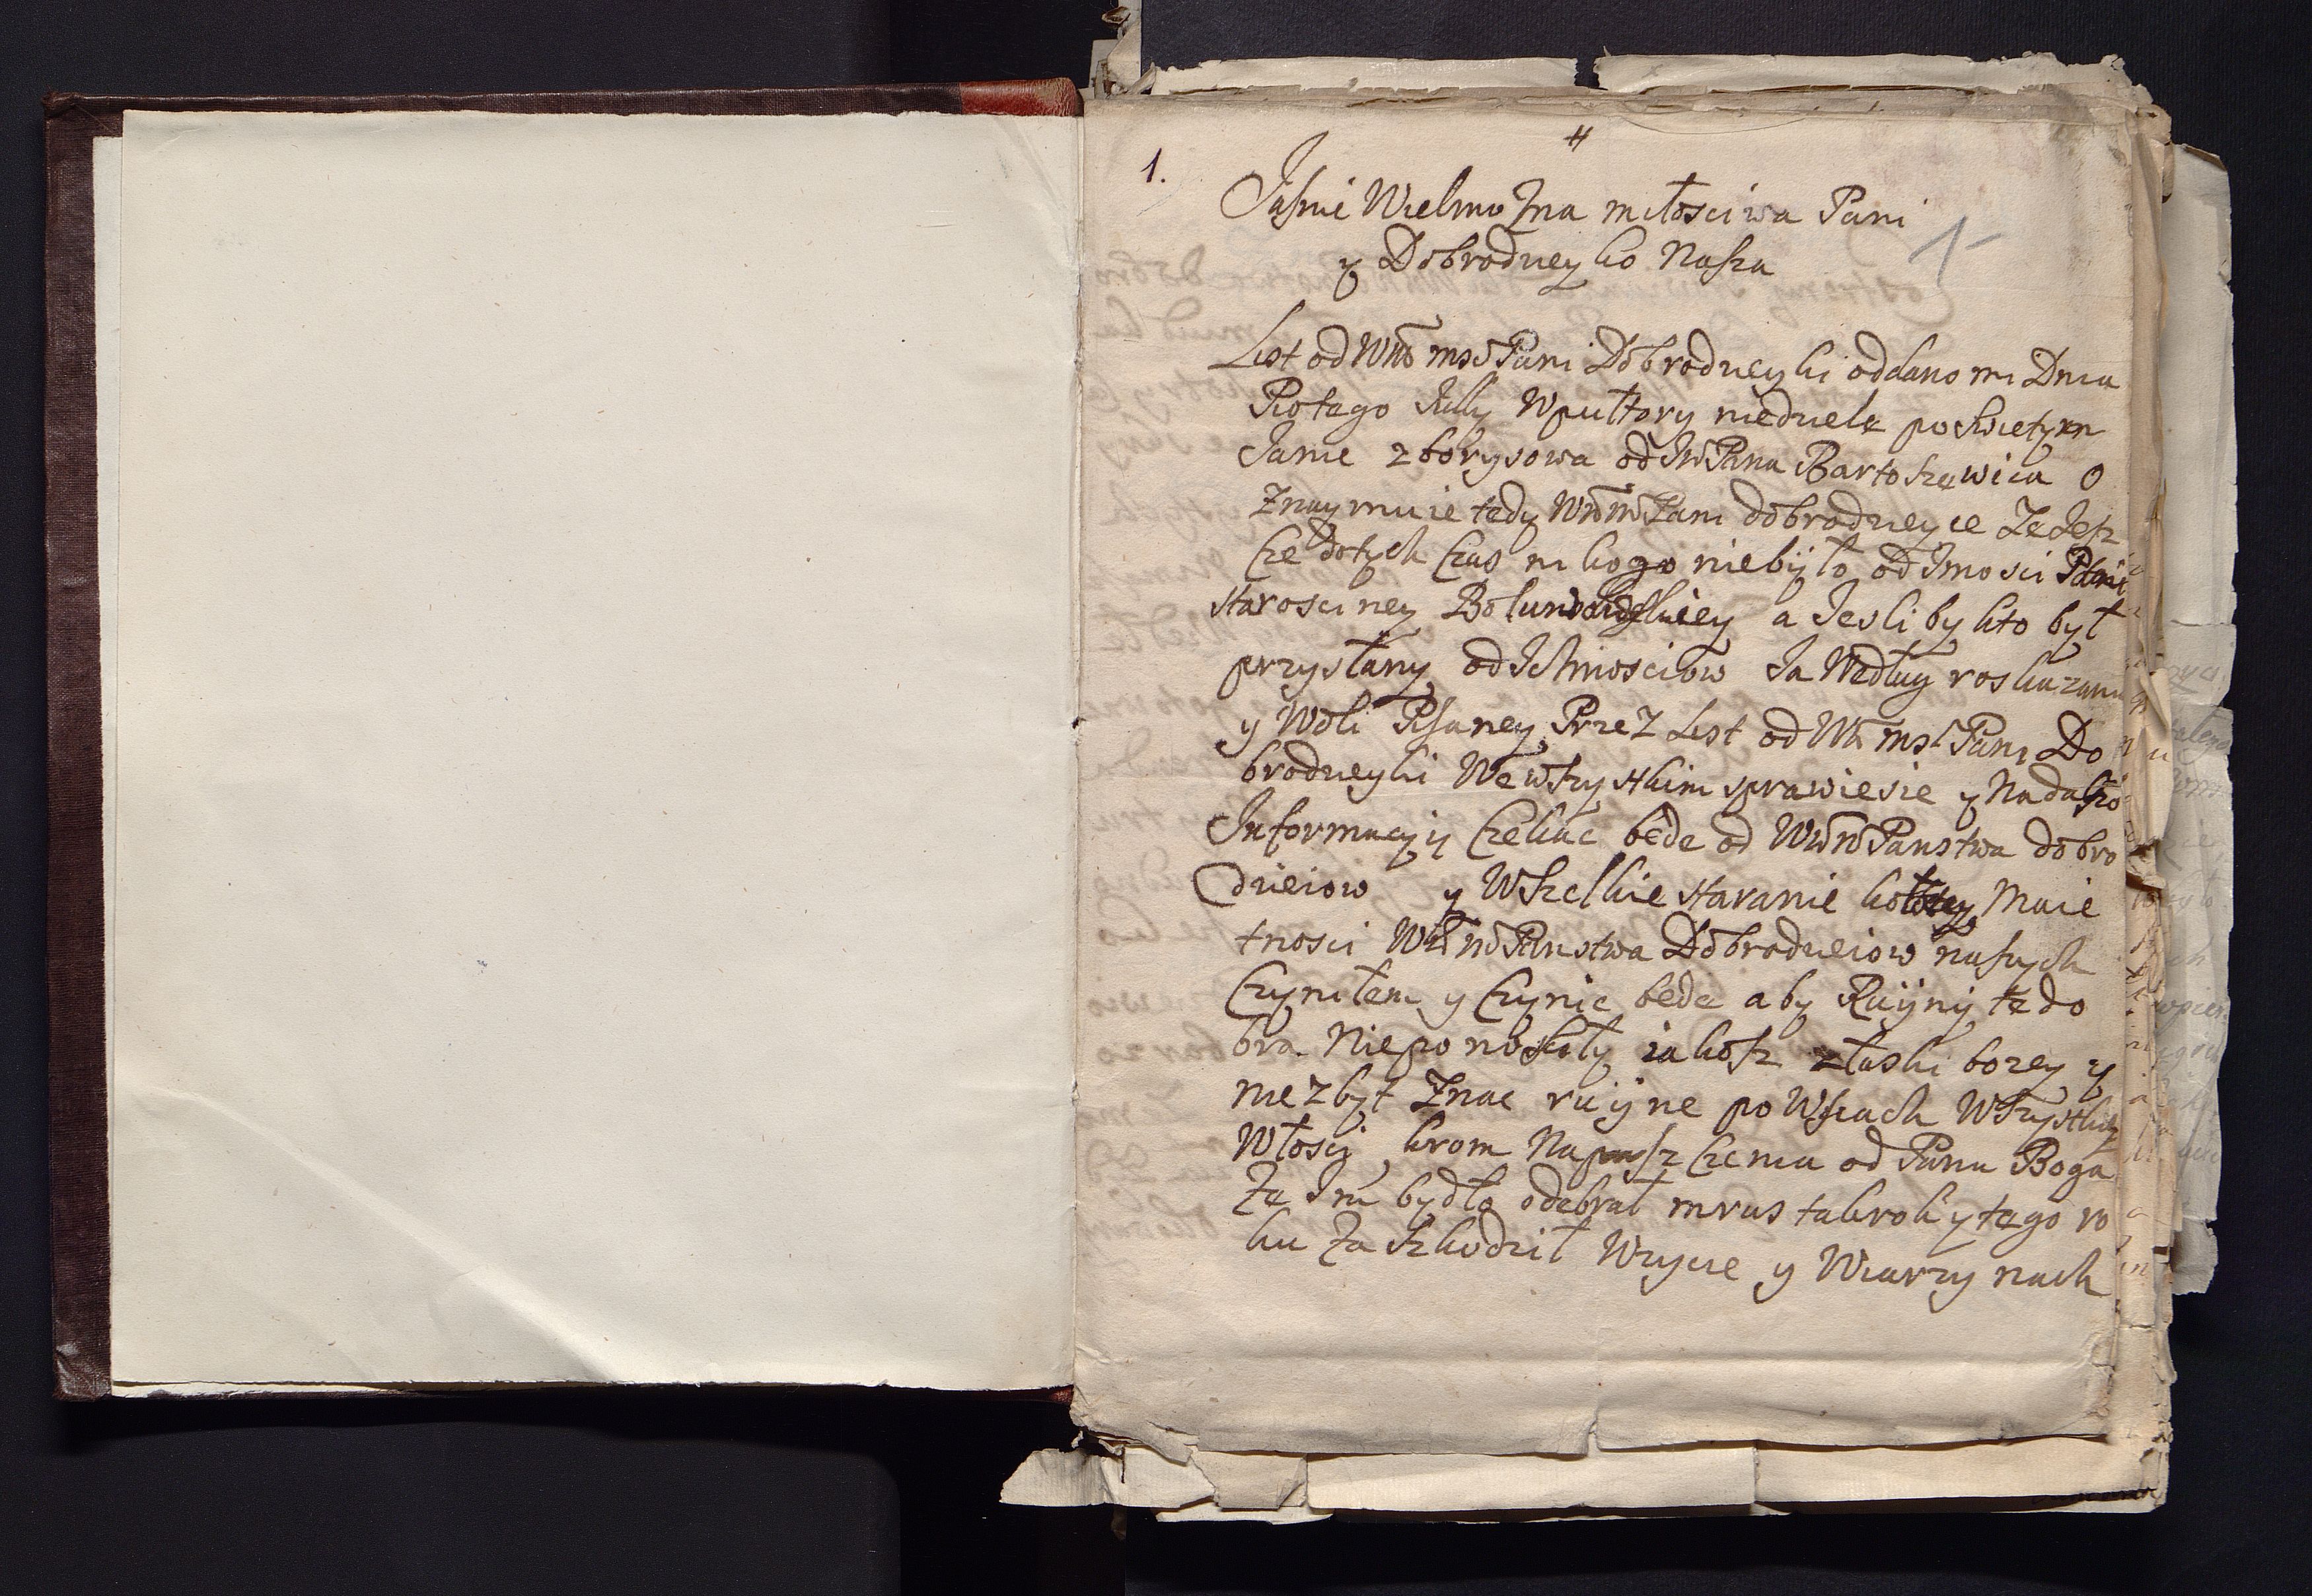 1.
Jaśnie Wielmożna miłościwa Pani
y Dobrodzieyko Nasza
1
List od WM msc Pani Dobrodzieyki oddano mi Dnia
Piotego July wpułtory niedziele poswietym
Janie zborysowa od Jm Pana Bartoszewica O
Znaymuie tedy Pani dobrodzieyce Ze Jesz
cze dotych czas ni kogo niebyło od Jmosci Pani
starosciney a Jesli by kto był
przysłany od Ichmosciow Ja Według roskazania
y Woli Pisaney Przez List od Pani Do
brodzieyki We wszystkim sprawiesie y Nadalszo
Informacyij Czekac bede od Panstwa dobro
dzieiow y Wszelkie staranie koło tey Maie
tnosci Panstwa Dobrodzieiow naszych
Czyniłem y Czynic bede aby Ruijny te do
bra Nieponosiły iakosz złaski bozey y
niezbyt Znac ruijne po Wsiach Wszystkiey
Włosci krom Napuszczenia od Pana Boga
Za Jm bydło odebrał mrus takrok y tego ro
ku Zaszkodził Wzycie y Wiarzynach